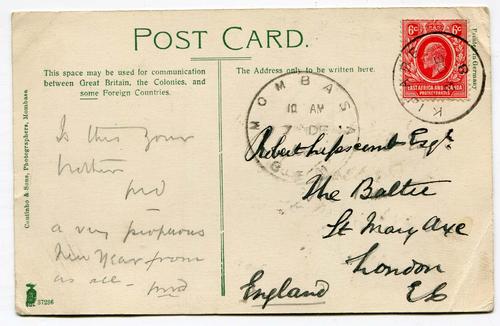 POST CARD.
This space may be used for communication
between Great Britain, the Colonies, and
some Foreign Countries.
The Address only to be written here.
Printed in Germany
6c 6c
EAST AFRICA AND UGANDA
PROTECTORATES
MOMBASA
10 AM
7 DE
Coutinho & Sons, Photographers, Mombasa
Is this your
brother
a very prosperous
New Year from
us all
Robert Lipscomb Esqr
The Baltic
St Mary Axe
London
England
EC
57236